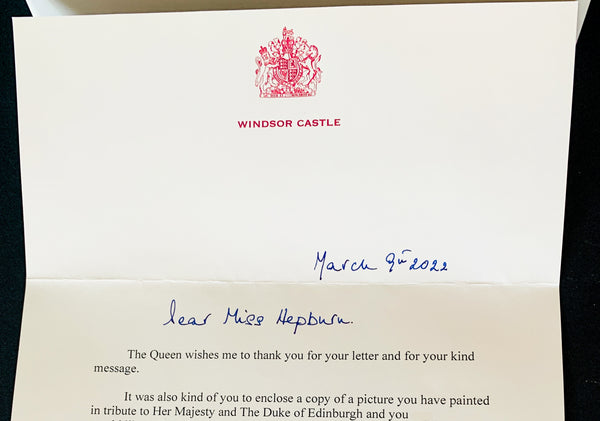 WINDSOR CASTLE
March 9th 2022
Dear Miss Hepburn.
The Queen wishes me to thank you for your letter and for your kind
message.
It was also kind of you to enclose a copy of a picture you have painted
in tribute to Her Majesty and The Duke of Edinburgh and you